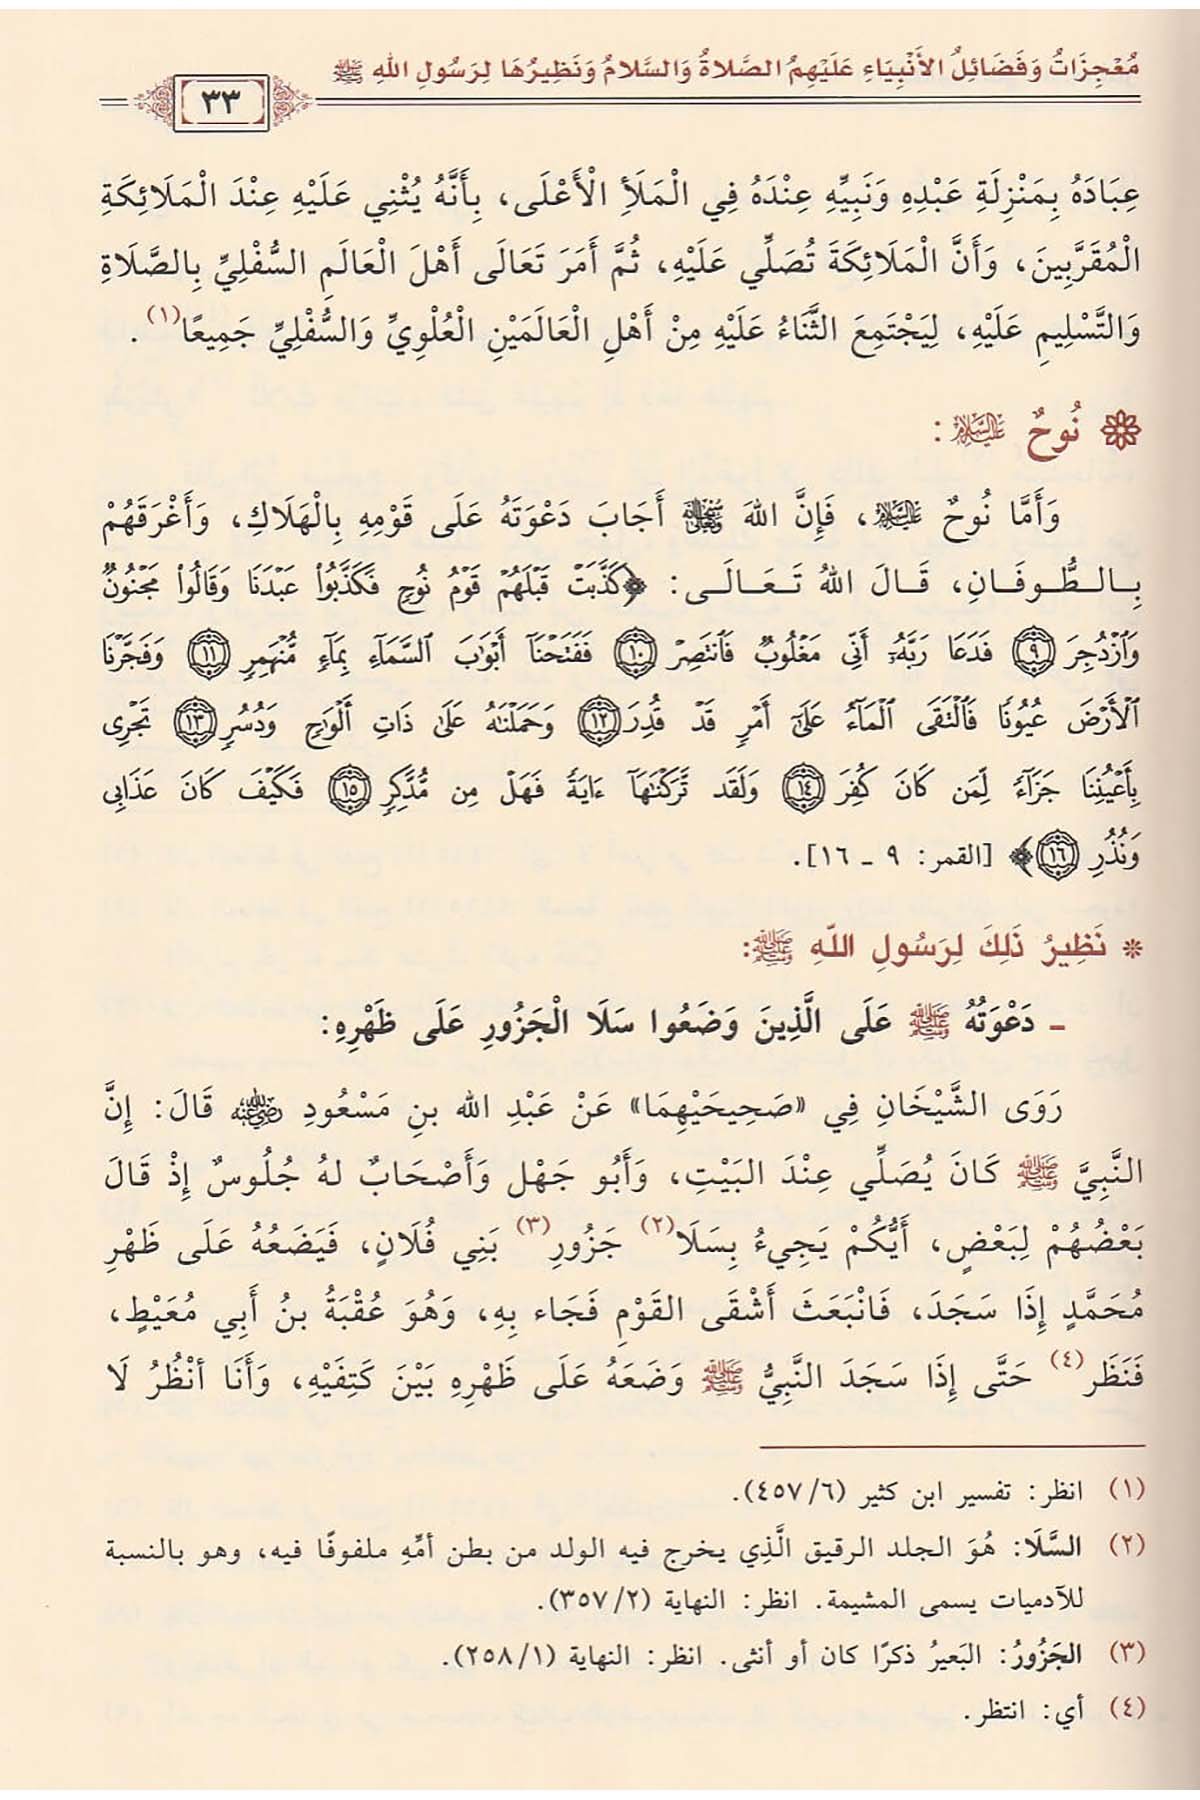 مُعْجِزَاتُ وَفَضَائِلُ الأَنْبِيَاءِ عَلَيْهِمُ الصَّلَاةُ وَالسَّلَامُ وَنَظِيرُهَا لِرَسُولِ اللهِ ﷺ
٣٣
عِبَادَهُ بِمَنْزِلَةِ عَبْدِهِ وَنَبِيِّهِ عِنْدَهُ فِي الْمَلَأِ الْأَعْلَى، بِأَنَّهُ يُثْنِي عَلَيْهِ عِنْدَ الْمَلَائِكَةِ
الْمُقَرَّبِينَ، وَأَنَّ الْمَلَائِكَةَ تُصَلِّي عَلَيْهِ، ثُمَّ أَمَرَ تَعَالَى أَهْلَ الْعَالَمِ السُّفْلِيِّ بِالصَّلَاةِ
وَالتَّسْلِيمِ عَلَيْهِ، لِيَجْتَمِعَ الثَّنَاءُ عَلَيْهِ مِنْ أَهْلِ الْعَالَمَيْنِ الْعُلْوِيِّ وَالسُّفْلِيِّ جَمِيعًا(١).
نُوحٌ عليه السلام:
وَأَمَّا نُوحٌ عليه السلام، فَإِنَّ اللهَ ﷾ أَجَابَ دَعْوَتَهُ عَلَى قَوْمِهِ بِالْهَلَاكِ، وَأَغْرَقَهُمْ
بِالطُّوفَانِ، قَالَ اللهُ تَعَالَى: ﴿كَذَّبَتْ قَبْلَهُمْ قَوْمُ نُوحٍ فَكَذَّبُوا۟ عَبْدَنَا وَقَالُوا۟ مَجْنُونٌ
وَٱزْدُجِرَ ﴿٩﴾ فَدَعَا رَبَّهُۥٓ أَنِّى مَغْلُوبٌ فَٱنتَصِرْ ﴿١٠﴾ فَفَتَحْنَآ أَبْوَٰبَ ٱلسَّمَآءِ بِمَآءٍ مُّنْهَمِرٍ ﴿١١﴾ وَفَجَّرْنَا
ٱلْأَرْضَ عُيُونًا فَٱلْتَقَى ٱلْمَآءُ عَلَىٰٓ أَمْرٍ قَدْ قُدِرَ ﴿١٢﴾ وَحَمَلْنَٰهُ عَلَىٰ ذَاتِ أَلْوَٰحٍ وَدُسُرٍ ﴿١٣﴾ تَجْرِى
بِأَعْيُنِنَا جَزَآءً لِّمَن كَانَ كُفِرَ ﴿١٤﴾ وَلَقَد تَّرَكْنَٰهَآ ءَايَةً فَهَلْ مِن مُّدَّكِرٍ ﴿١٥﴾ فَكَيْفَ كَانَ عَذَابِى
وَنُذُرِ ﴿١٦﴾﴾ [القمر: ٩ ـ ١٦].
* نَظِيرُ ذَلِكَ لِرَسُولِ اللهِ ﷺ:
ـ دَعْوَتُهُ ﷺ عَلَى الَّذِينَ وَضَعُوا سَلَا الْجَزُورِ عَلَى ظَهْرِهِ:
رَوَى الشَّيْخَانِ فِي «صَحِيحَيْهِمَا» عَنْ عَبْدِ الله بنِ مَسْعُودٍ رضي الله عنه قَالَ: إِنَّ
النَّبِيَّ ﷺ كَانَ يُصَلِّي عِنْدَ البَيْتِ، وَأَبُو جَهْلٍ وَأَصْحَابٌ لهُ جُلُوسٌ إِذْ قَالَ
بَعْضُهُمْ لِبَعْضٍ، أَيُّكُمْ يَجِيءُ بِسَلَا(٢) جَزُورِ(٣) بَنِي فُلَانٍ، فَيَضَعُهُ عَلَى ظَهْرِ
مُحَمَّدٍ إِذَا سَجَدَ، فَانْبَعَثَ أَشْقَى القَوْمِ فَجَاء بِهِ، وَهُوَ عُقْبَةُ بنُ أَبِي مُعَيْطٍ،
فَنَظَر(٤) حَتَّى إِذَا سَجَدَ النَّبِيُّ ﷺ وَضَعَهُ عَلَى ظَهْرِهِ بَيْنَ كَتِفَيْهِ، وَأَنَا أنْظُرُ لَا
(١) انظر: تفسير ابن كثير (٤٥٧/٦).
(٢) السَّلَا: هُوَ الجلد الرقيق الَّذِي يخرج فيه الولد من بطن أمِّهِ ملفوفًا فيه، وهو بالنسبة
للآدميات يسمى المشيمة. انظر: النهاية (٣٥٧/٢).
(٣) الجَزُورُ: البَعيرُ ذكرًا كان أو أنثى. انظر: النهاية (٢٥٨/١).
(٤) أي: انتظر.